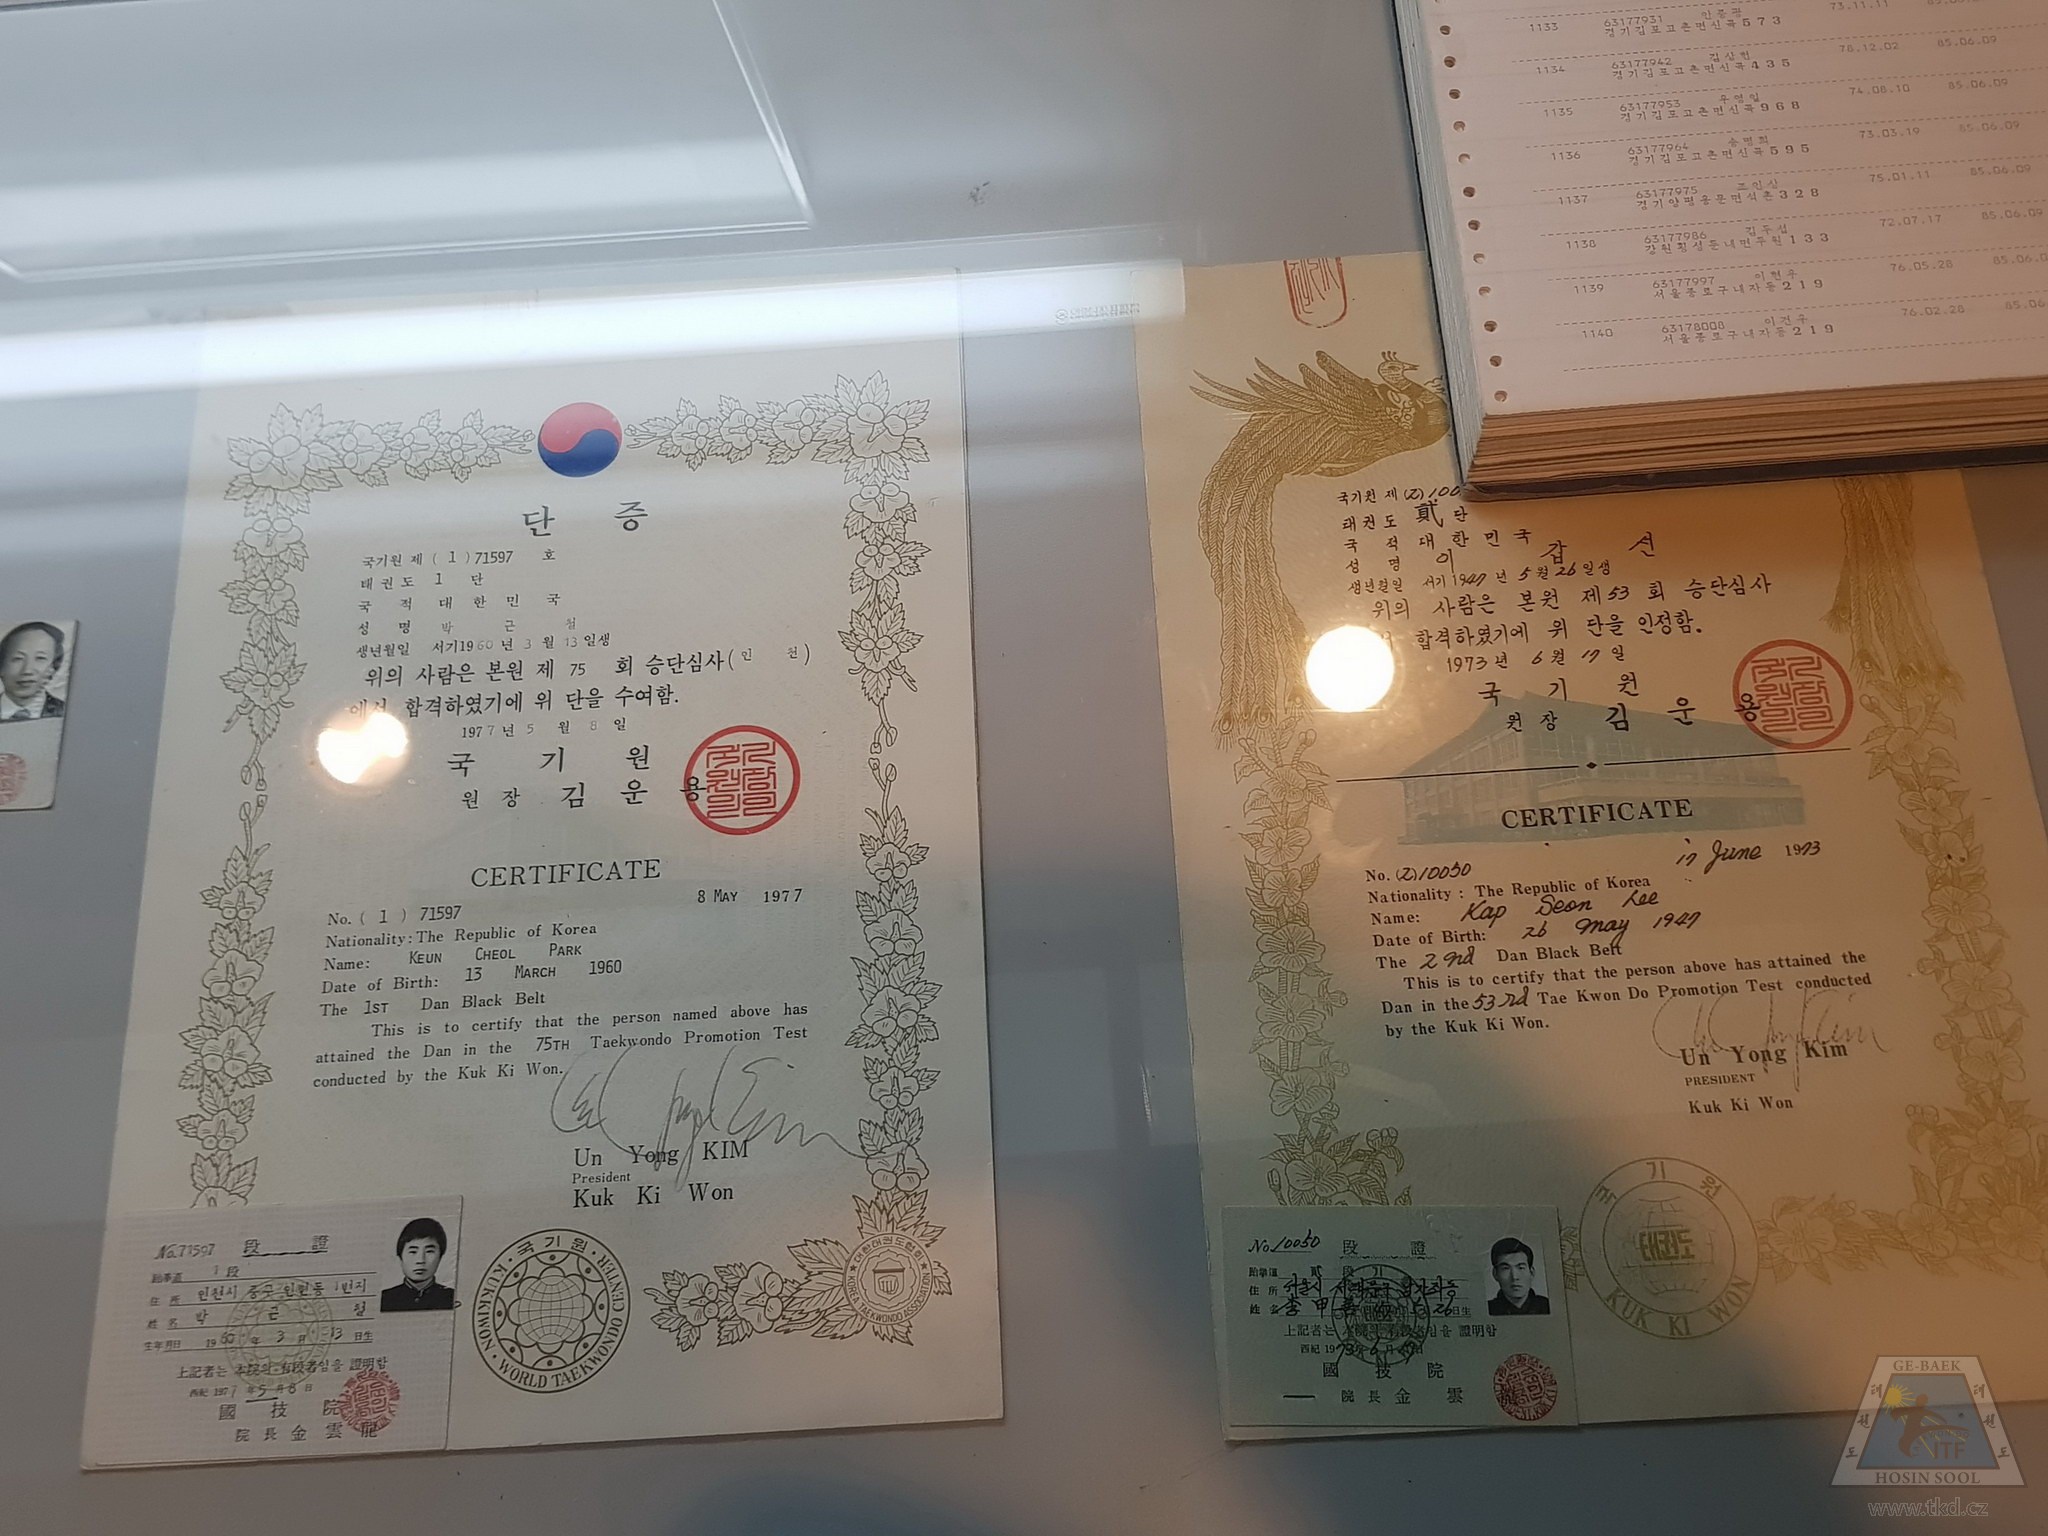 단 증
국기원 제 ( 1 ) 71597 호
태권도 1 단
국 적 대 한 민 국
성 명 박 근 철
생년월일 서기1960 년 3 월 13 일생
위의 사람은 본원 제 75 회 승단심사 ( 인 천 )
에서 합격하였기에 위 단을 수여함.
1977 년 5 월 8 일
국 기 원
원 장 김 운 용
CERTIFICATE
8 MAY 1977
No. ( 1 ) 71597
Nationality: The Republic of Korea
Name: KEUN CHEOL PARK
Date of Birth: 13 MARCH 1960
The 1ST Dan Black Belt
This is to certify that the person named above has
attained the Dan in the 75TH Taekwondo Promotion Test
conducted by the Kuk Ki Won.
Un Yong KIM
President
Kuk Ki Won
No.71597 段 證
跆拳道 1 段
住 所 인천시 중구 인현동 1번지
姓 名 박 근 철
生年月日 1960 年 3 月 13 日生
上記者는 本院의 有段者임을 證明함
西紀 1977 年 5 月 8 日
國 技 院
院 長 金 雲 龍
국기원
KUKKIWON · WORLD TAEKWONDO CENTER
대한태권도협회
KOREA TAEKWONDO ASSOCIATION
국기원 제 (2)100
태권도 貳 단
국 적 대 한 민 국
성 명 이 갑 선
생년월일 서기 1947 년 5 월 26 일생
위의 사람은 본원 제 53 회 승단심사
합격하였기에 위 단을 인정함.
1973 년 6 월 17 일
국 기 원
원 장 김 운 용
CERTIFICATE
17 June 1973
No. (2)10050
Nationality : The Republic of Korea
Name: Kap Seon Lee
Date of Birth: 26 May 1947
The 2nd Dan Black Belt
This is to certify that the person above has attained the
Dan in the 53rd Tae Kwon Do Promotion Test conducted
by the Kuk Ki Won.
Un Yong Kim
PRESIDENT
Kuk Ki Won
No.10050 段 證
跆拳道 貳 段
住 所
姓 名 李 甲
上記者는 本院의 有段者임을 證明함
國 技 院
院 長 金 雲 龍
국 기 원
태권도
KUK KI WON
1133 63177931 민중광 73.11.11
경기김포고촌면신곡573
1134 63177942 김상현 78.12.02 85.06.09
경기김포고촌면신곡435
1135 63177953 우영일 74.08.10 85.06.09
경기김포고촌면신곡968
1136 63177964 송명희 73.03.19 85.06.09
경기김포고촌면신곡595
1137 63177975 조인상 75.01.11 85.06.09
경기양평용문면석촌328
1138 63177986 김두섭 72.07.17 85.06.09
강원횡성둔내면두원133
1139 63177997 이현우 76.05.28 85.06.0
서울종로구내자동219
1140 63178008 이건우 76.02.28 85.06
서울종로구내자동219
GE-BAEK
ITF
HOSIN SOOL
www.tkd.cz